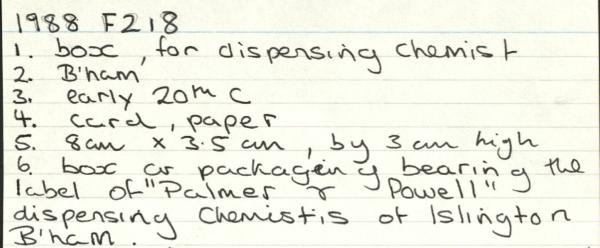 1988 F218
1. box, for dispensing chemist
2. B'ham
3. early 20th C
4. card, paper
5. 8cm x 3.5 cm, by 3 cm high
6. box as packaging bearing the
label of "Palmer & Powell"
dispensing Chemistis of Islington
B'ham.